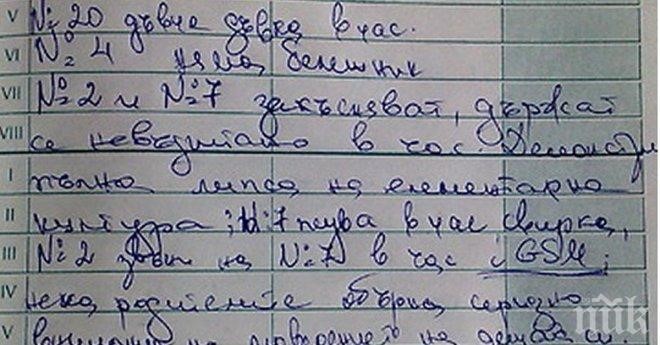 V № 20 дъвче дъвка в час.
VI № 4 няма бележник
VII № 2 и № 7 закъсняват, държат
VIII се невъзпитано в час. Демонстри
I пълна липса на елементарна
II култура; № 7 псува в час, свирка,
III № 2 звъни на № 7 в час с GSM;
IV нека родителите обърнат сериозно
V внимание на поведението на децата си.
пик